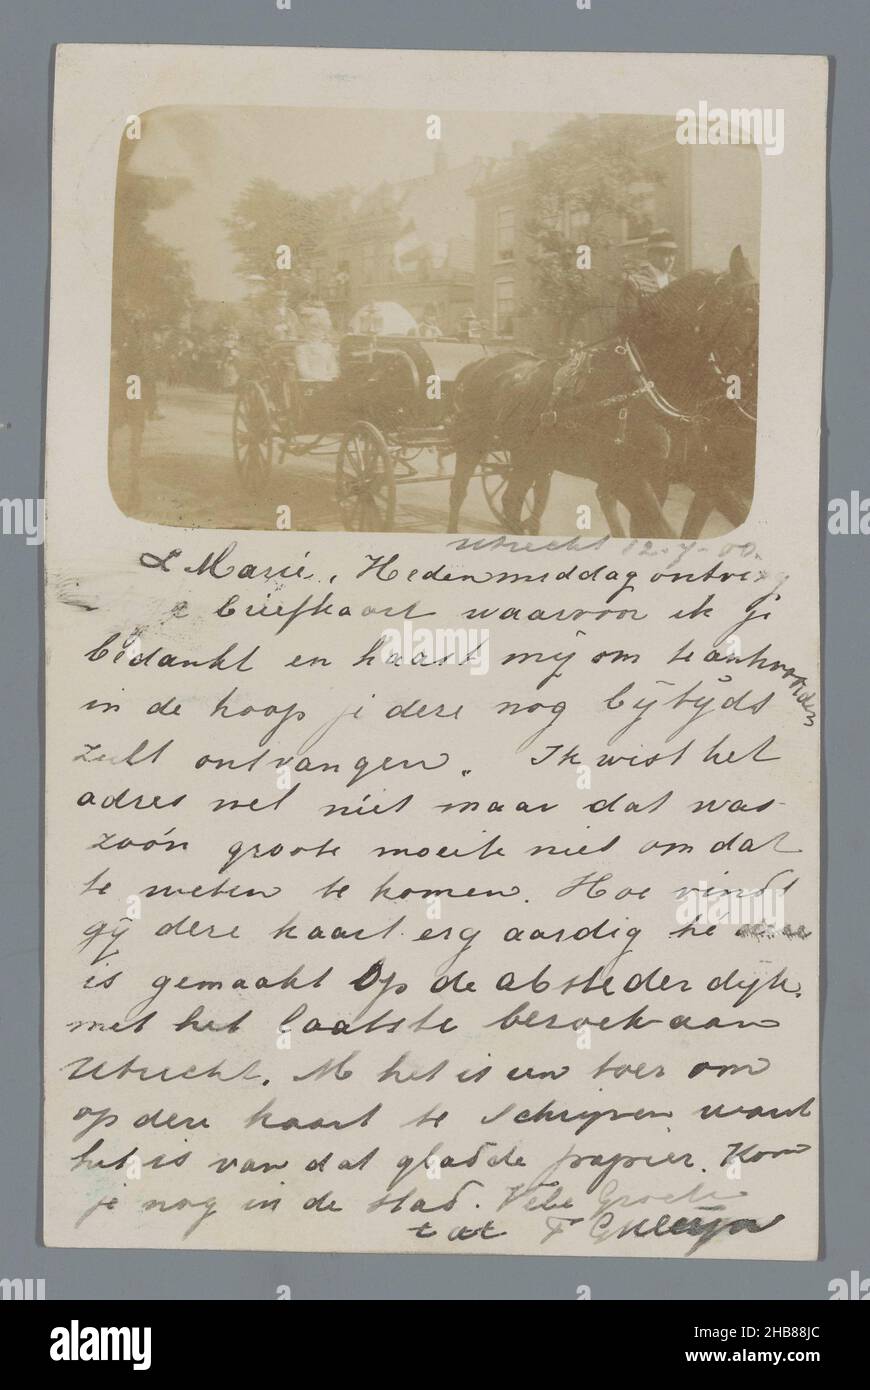 Utrecht 12-7-00.
L Marie, Heden middag ontving
briefkaart waarvoor ik je
bedankt en haast mij om te antwoorden
in de hoop je deze nog bijtijds
zult ontvangen. Ik wist het
adres wel niet maar dat was
zoo'n groote moeite niet om dat
te weten te komen. Hoe vindt
gij deze kaart erg aardig hé
is gemaakt Op de absteder dijk.
met het laatste bezoek aan
Utrecht. M het is een toer om
op deze kaart te schrijven want
het is van dat gladde papier. Kom
je nog in de stad. Vele Groete
tot F
alamy
Image ID: 2HB88JC
www.alamy.com